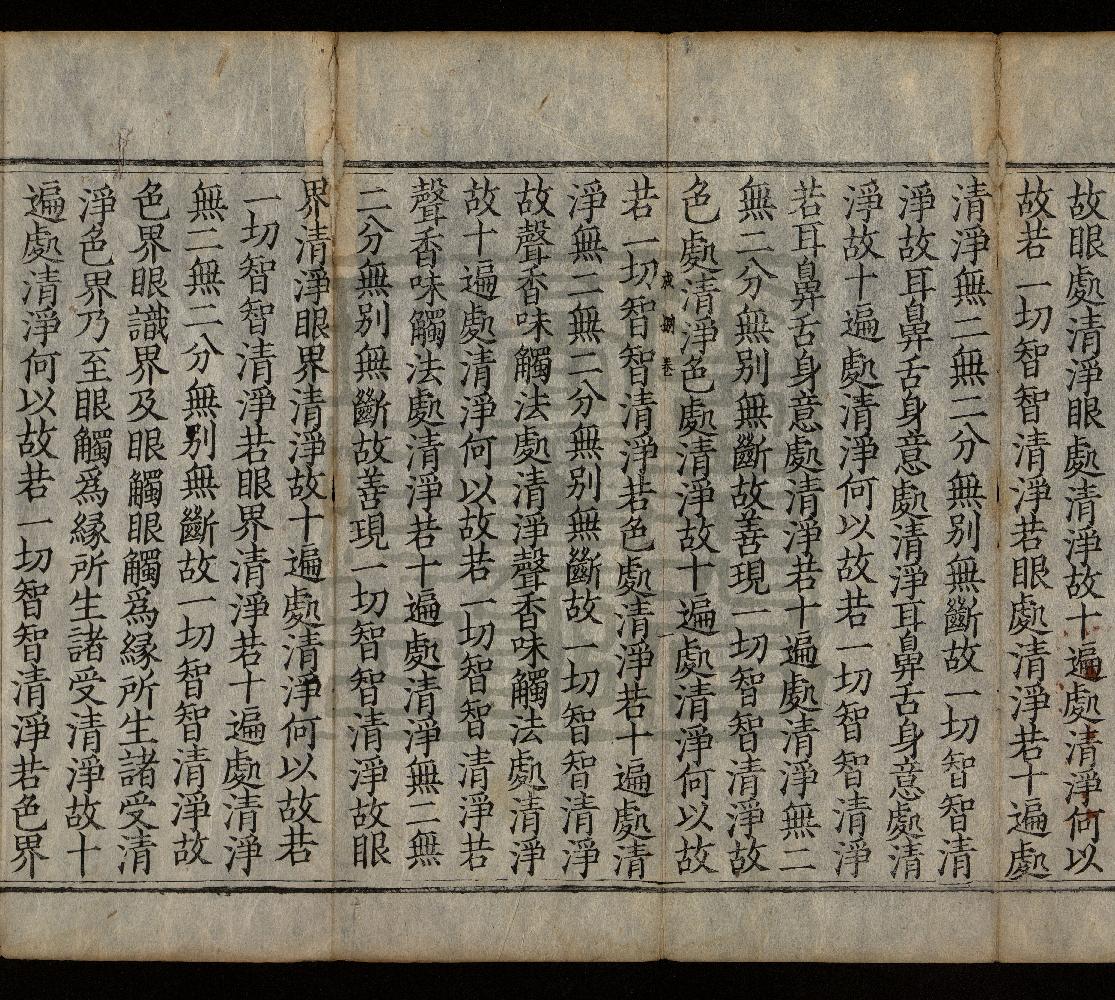 故眼處清淨眼處清淨故十遍處清淨何以
故若一切智智清淨若眼處清淨若十遍處
清淨無二無二分無别無斷故一切智智清
淨故耳鼻舌身意處清淨耳鼻舌身意處清
淨故十遍處清淨何以故若一切智智清淨
若耳鼻舌身意處清淨若十遍處清淨無二
無二分無别無斷故善現一切智智清淨故
色處清淨色處清淨故十遍處清淨何以故
若一切智智清淨若色處清淨若十遍處清
淨無二無二分無别無斷故一切智智清淨
故聲香味觸法處清淨聲香味觸法處清淨
故十遍處清淨何以故若一切智智清淨若
聲香味觸法處清淨若十遍處清淨無二無
二分無别無斷故善現一切智智清淨故眼
界清淨眼界清淨故十遍處清淨何以故若
一切智智清淨若眼界清淨若十遍處清淨
無二無二分無别無斷故一切智智清淨故
色界眼識界及眼觸眼觸爲緣所生諸受清
淨色界乃至眼觸爲緣所生諸受清淨故十
遍處清淨何以故若一切智智清淨若色界